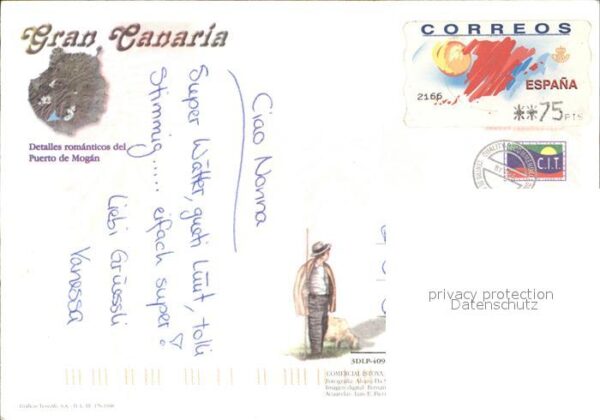 Gran Canaria
Detalles románticos del
Puerto de Mogán
Ciao Nonna
Super Wätter, gueti Lüüt, tolli
Stimmig..... eifach super!
Liebi Grüessli
Vanessa
CORREOS
ESPAÑA
2166
**75 PTS
C.I.T.
privacy protection
Datenschutz
3DLP-409
COMERCIAL ISTOVA